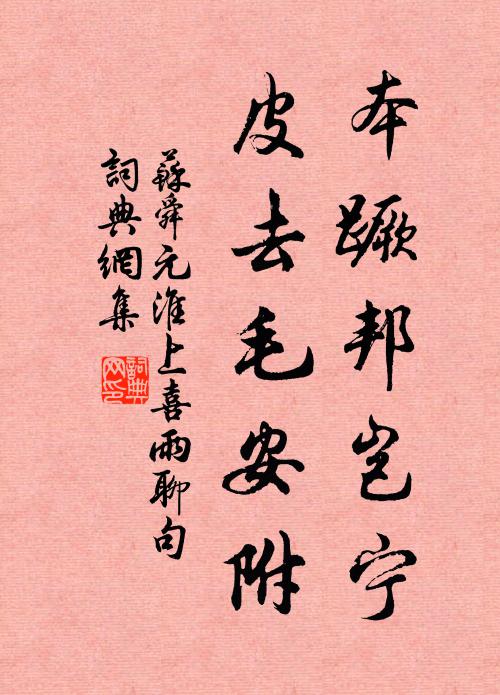 本蹶邦岂宁
皮去毛安附
蘇舜元淮上喜雨聊句
詞典網集
詞典網印